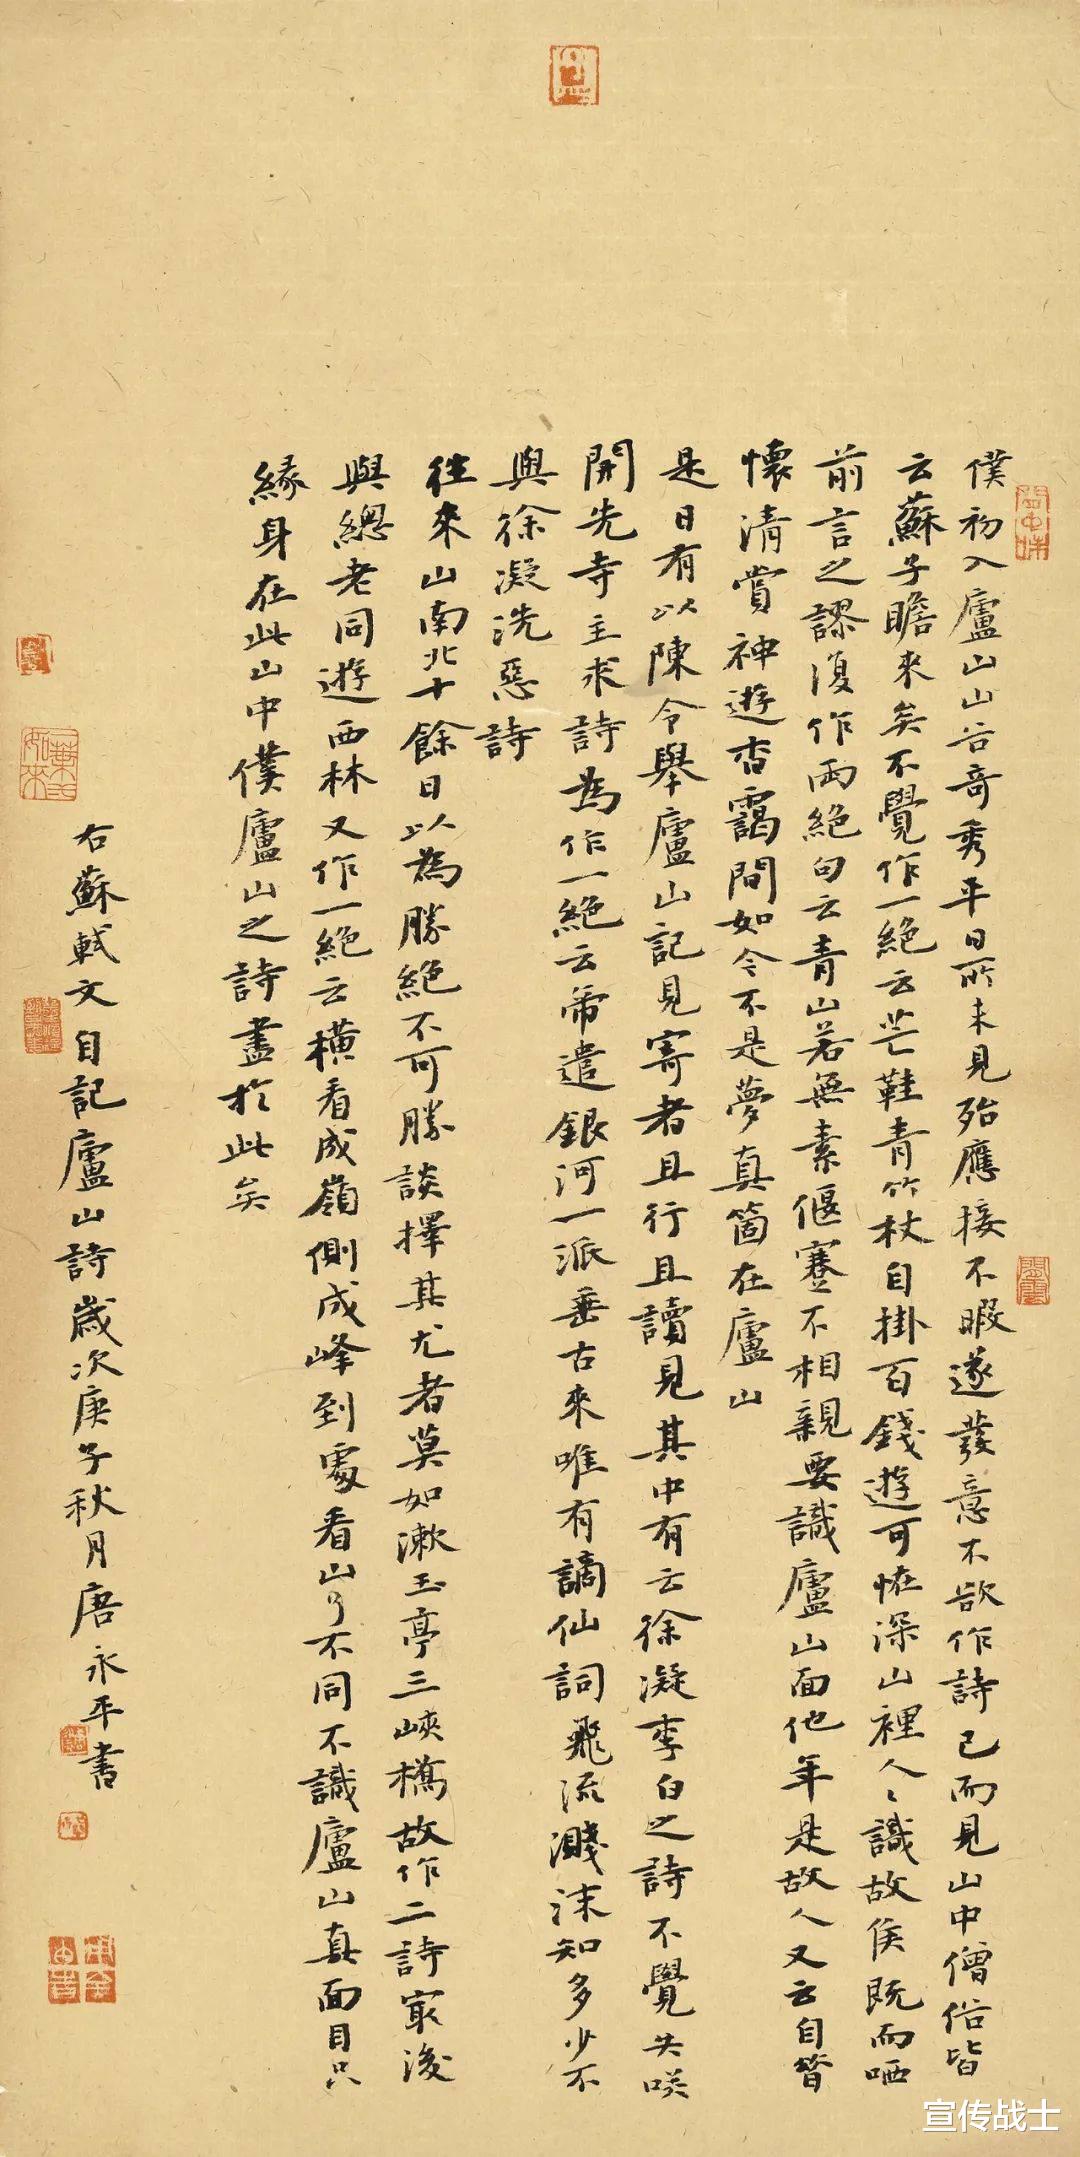 僕初入廬山山谷奇秀平日所未見殆應接不暇遂發意不欲作詩已而見山中僧俗皆
云蘇子瞻來矣不覺作一絕云芒鞋青竹杖自掛百錢遊可怪深山裡人〻識故侯既而哂
前言之謬復作兩絕句云青山若無素偃蹇不相親要識廬山面他年是故人又云自昔
懷清賞神遊杳靄間如今不是夢真箇在廬山
是日有以陳令舉廬山記見寄者且行且讀見其中有云徐凝李白之詩不覺失咲
開先寺主求詩為作一絕云帝遣銀河一派垂古來唯有謫仙詞飛流濺沫知多少不
與徐凝洗惡詩
往來山南北十餘日以為勝絕不可勝談擇其尤者莫如漱玉亭三峽橋故作二詩最後
與總老同遊西林又作一絕云橫看成嶺側成峰到處看山了不同不識廬山真面目只
緣身在此山中僕廬山之詩盡於此矣
右蘇軾文自記廬山詩歲次庚子秋月唐永平書
宣传战士